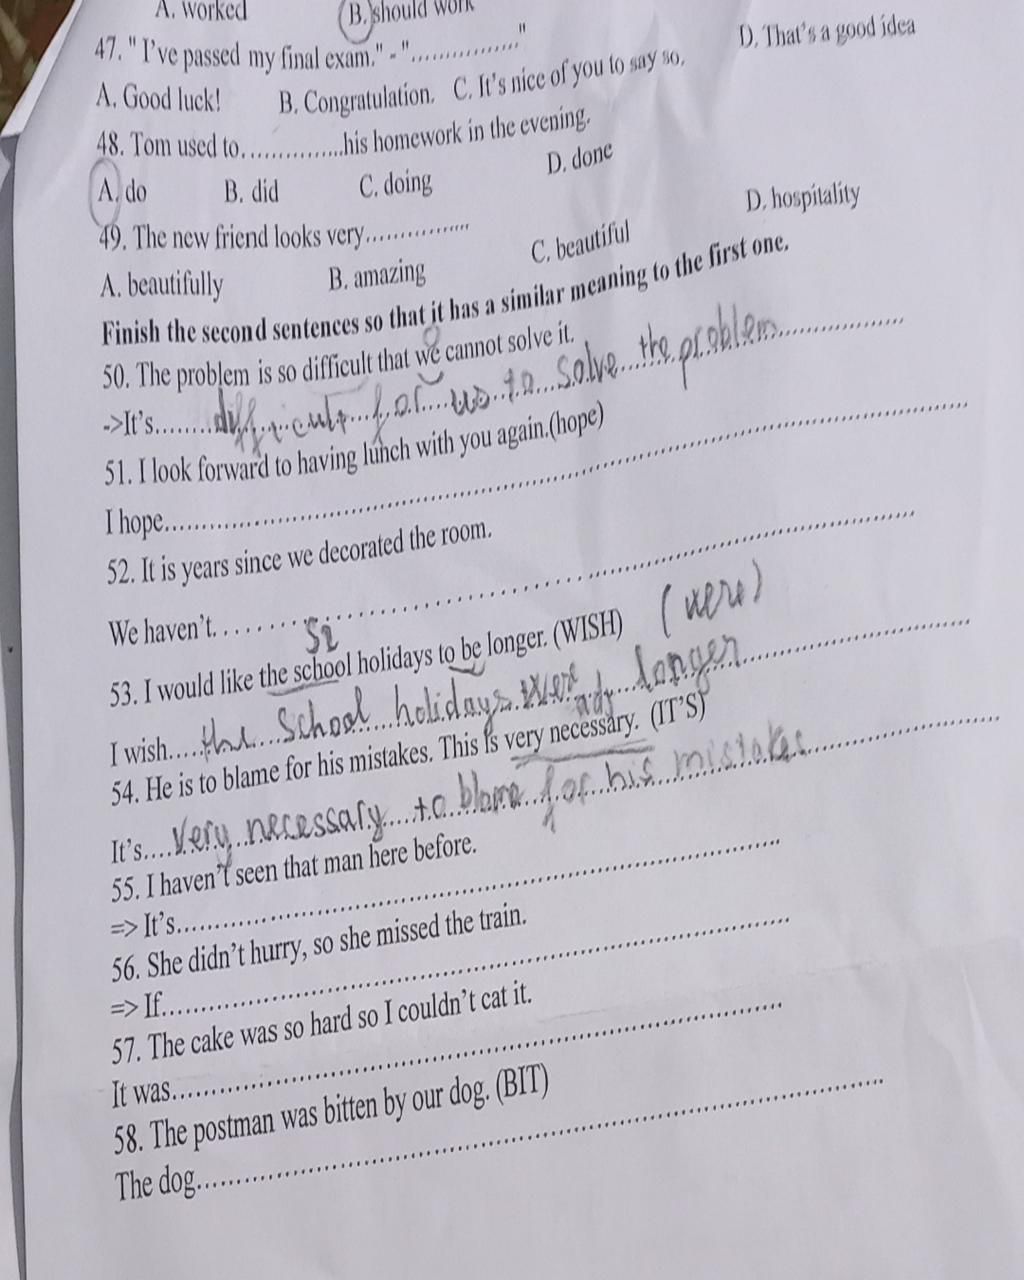 A. worked B. should work
47. " I've passed my final exam." - "................"
A. Good luck! B. Congratulation. C. It's nice of you to say so. D. That's a good idea
48. Tom used to...............his homework in the evening.
A. do B. did C. doing D. done
49. The new friend looks very................
A. beautifully B. amazing C. beautiful D. hospitality
Finish the second sentences so that it has a similar meaning to the first one.
50. The problem is so difficult that we cannot solve it.
->It's........difficult for us to solve the problem................
51. I look forward to having lunch with you again.(hope)
I hope................................................................
52. It is years since we decorated the room.
We haven't................................................................
S2 (were)
53. I would like the school holidays to be longer. (WISH)
I wish.....the school holidays were longer................
adj
54. He is to blame for his mistakes. This is very necessary. (IT'S)
It's....very necessary to blame for his mistakes................
55. I haven't seen that man here before.
=> It's................................................................
56. She didn't hurry, so she missed the train.
=> If................................................................
57. The cake was so hard so I couldn't cat it.
It was................................................................
58. The postman was bitten by our dog. (BIT)
The dog................................................................